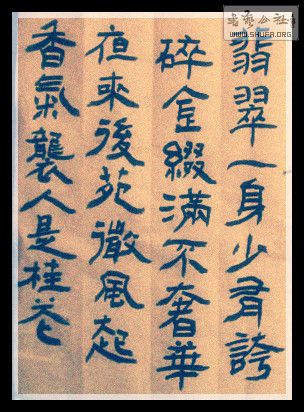 书艺公社
WWW.SHUFA.ORG
翡翠一身少有誇
碎金綴滿不奢華
夜來後苑微風起
香氣襲人是桂花